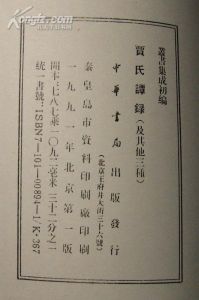 叢書集成初編
賈氏譚録(及其他三種)
中華書局出版發行
(北京王府井大街三十六號)
秦皇島市資料印刷廠印刷
一九九一年北京第一版
開本七八七乘一〇九二毫米三十二分之一
統一書號:ISBN7-101-00894-1/K·367